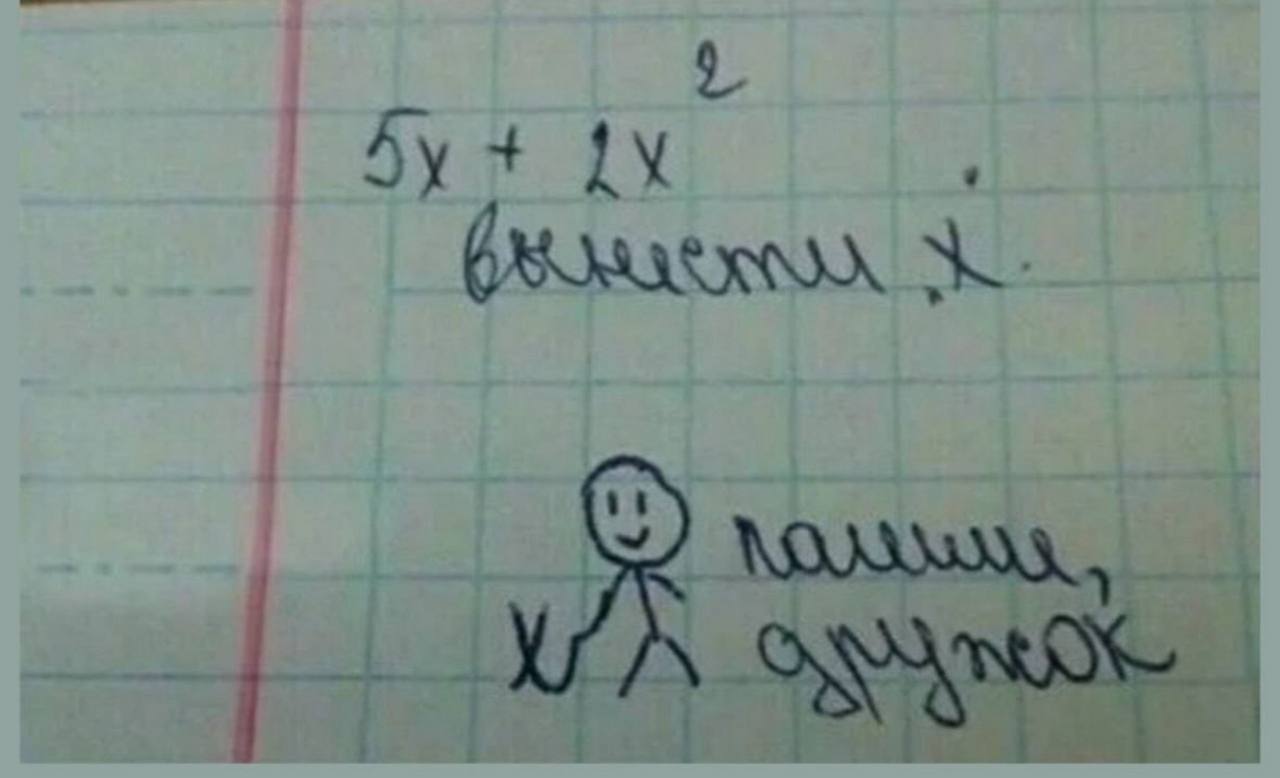 5x + 2x²
вынести x.
пошли,
x дружок